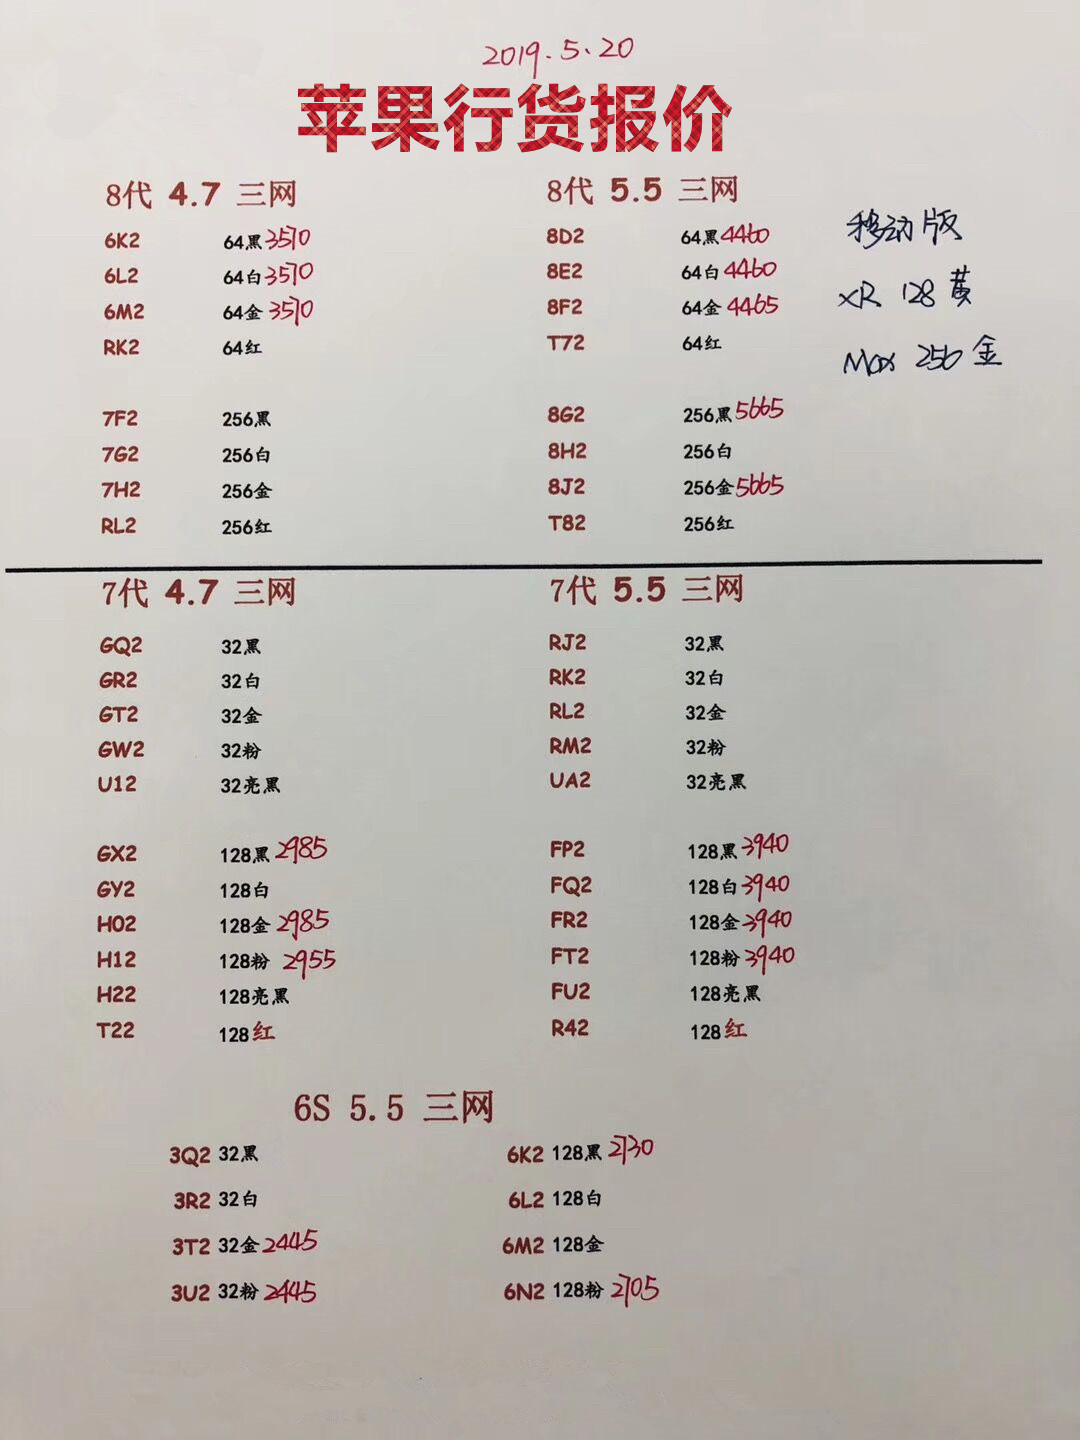 2019.5.20
苹果行货报价
8代 4.7 三网
6K2 64黑 3570
6L2 64白 3570
6M2 64金 3570
RK2 64红
7F2 256黑
7G2 256白
7H2 256金
RL2 256红
8代 5.5 三网
8D2 64黑 4460
8E2 64白 4460
8F2 64金 4465
T72 64红
8G2 256黑 5665
8H2 256白
8J2 256金 5665
T82 256红
移动版
XR 128 黄
Max 256 金
7代 4.7 三网
GQ2 32黑
GR2 32白
GT2 32金
GW2 32粉
U12 32亮黑
GX2 128黑 2985
GY2 128白
H02 128金 2985
H12 128粉 2955
H22 128亮黑
T22 128红
7代 5.5 三网
RJ2 32黑
RK2 32白
RL2 32金
RM2 32粉
UA2 32亮黑
FP2 128黑 3940
FQ2 128白 3940
FR2 128金 3940
FT2 128粉 3940
FU2 128亮黑
R42 128红
6S 5.5 三网
3Q2 32黑
3R2 32白
3T2 32金 2445
3U2 32粉 2445
6K2 128黑 2730
6L2 128白
6M2 128金
6N2 128粉 2705